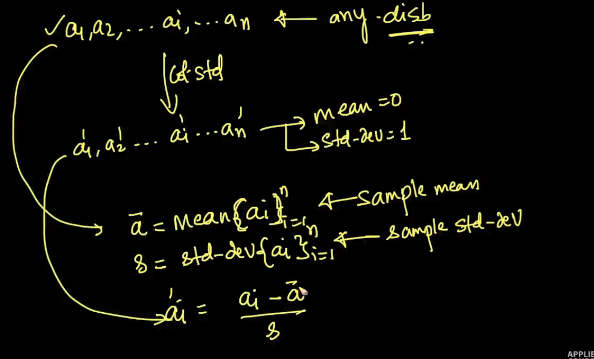 ✓a₁, a₂, ... aᵢ, ... aₙ ← any disb
col-std
a₁', a₂' ... aᵢ' ... aₙ' → mean = 0
→ std-dev = 1
ā = mean{aᵢ}ⁿᵢ₌₁ ← sample mean
s = std-dev{aᵢ}ⁿᵢ₌₁ ← sample std-dev
aᵢ' = (aᵢ - ā) / s
APPLIE